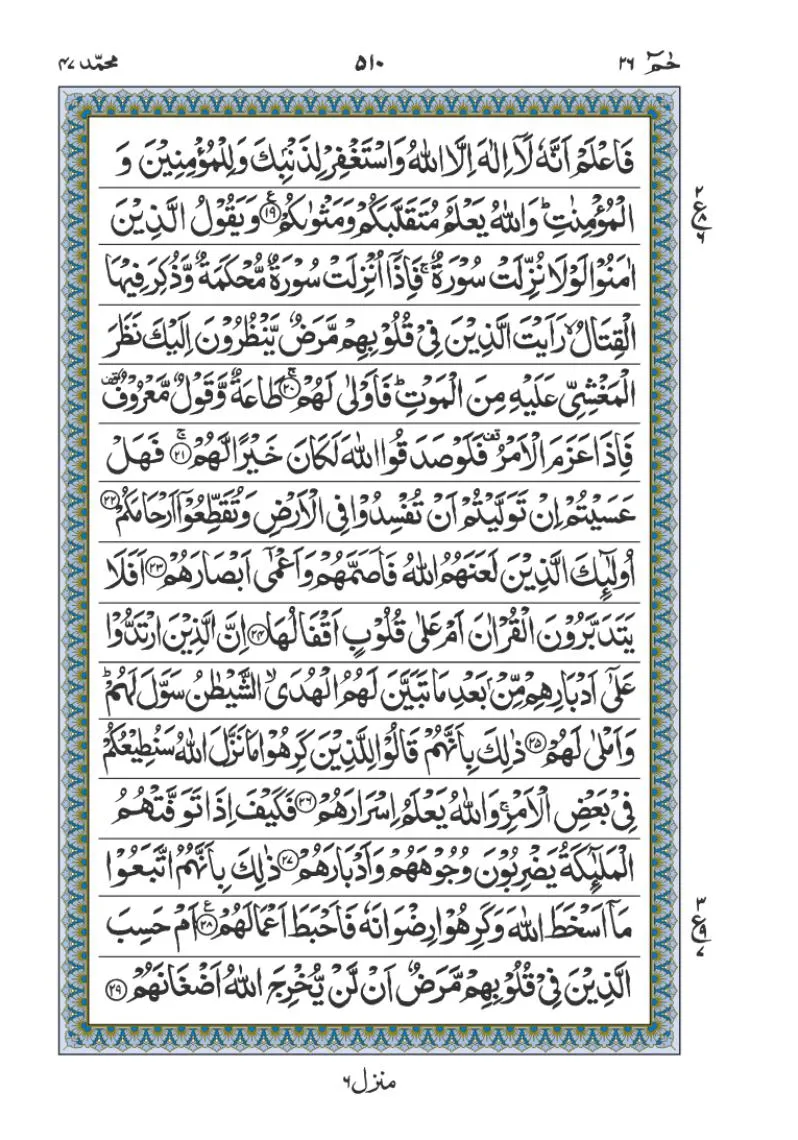 حٰمٓ ۲۶
۵۱۰
محمّد ۴۷
فَاعْلَمْ اَنَّهٗ لَاۤ اِلٰهَ اِلَّا اللّٰهُ وَاسْتَغْفِرْ لِذَنْۢبِكَ وَلِلْمُؤْمِنِيْنَ وَ
الْمُؤْمِنٰتِ ؕ وَاللّٰهُ يَعْلَمُ مُتَقَلَّبَكُمْ وَمَثْوٰىكُمْ ﴿۱۹﴾ وَيَقُوْلُ الَّذِيْنَ
اٰمَنُوْا لَوْلَا نُزِّلَتْ سُوْرَةٌ ۚ فَاِذَاۤ اُنْزِلَتْ سُوْرَةٌ مُّحْكَمَةٌ وَّذُكِرَ فِيْهَا
الْقِتَالُ ۙ رَاَيْتَ الَّذِيْنَ فِيْ قُلُوْبِهِمْ مَّرَضٌ يَّنْظُرُوْنَ اِلَيْكَ نَظَرَ
الْمَغْشِيِّ عَلَيْهِ مِنَ الْمَوْتِ ؕ فَاَوْلٰى لَهُمْ ۚ ﴿۲۰﴾ طَاعَةٌ وَّقَوْلٌ مَّعْرُوْفٌ ۟قف
فَاِذَا عَزَمَ الْاَمْرُ ۟قف فَلَوْ صَدَقُوا اللّٰهَ لَكَانَ خَيْرًا لَّهُمْ ۚ ﴿۲۱﴾ فَهَلْ
عَسَيْتُمْ اِنْ تَوَلَّيْتُمْ اَنْ تُفْسِدُوْا فِي الْاَرْضِ وَتُقَطِّعُوْۤا اَرْحَامَكُمْ ﴿۲۲﴾
اُولٰٓئِكَ الَّذِيْنَ لَعَنَهُمُ اللّٰهُ فَاَصَمَّهُمْ وَاَعْمٰۤى اَبْصَارَهُمْ ﴿۲۳﴾ اَفَلَا
يَتَدَبَّرُوْنَ الْقُرْاٰنَ اَمْ عَلٰى قُلُوْبٍ اَقْفَالُهَا ﴿۲۴﴾ اِنَّ الَّذِيْنَ ارْتَدُّوْا
عَلٰۤى اَدْبَارِهِمْ مِّنْۢ بَعْدِ مَا تَبَيَّنَ لَهُمُ الْهُدَى ۙ الشَّيْطٰنُ سَوَّلَ لَهُمْ ؕ
وَاَمْلٰى لَهُمْ ﴿۲۵﴾ ذٰلِكَ بِاَنَّهُمْ قَالُوْا لِلَّذِيْنَ كَرِهُوْا مَا نَزَّلَ اللّٰهُ سَنُطِيْعُكُمْ
فِيْ بَعْضِ الْاَمْرِ ۚ وَاللّٰهُ يَعْلَمُ اِسْرَارَهُمْ ﴿۲۶﴾ فَكَيْفَ اِذَا تَوَفَّتْهُمُ
الْمَلٰٓئِكَةُ يَضْرِبُوْنَ وُجُوْهَهُمْ وَاَدْبَارَهُمْ ﴿۲۷﴾ ذٰلِكَ بِاَنَّهُمُ اتَّبَعُوْا
مَاۤ اَسْخَطَ اللّٰهَ وَكَرِهُوْا رِضْوَانَهٗ فَاَحْبَطَ اَعْمَالَهُمْ ﴿۲۸﴾ اَمْ حَسِبَ
الَّذِيْنَ فِيْ قُلُوْبِهِمْ مَّرَضٌ اَنْ لَّنْ يُّخْرِجَ اللّٰهُ اَضْغَانَهُمْ ﴿۲۹﴾
۲ ع ۸ ۶
۳ ع ۹ ۷
منزل ۶